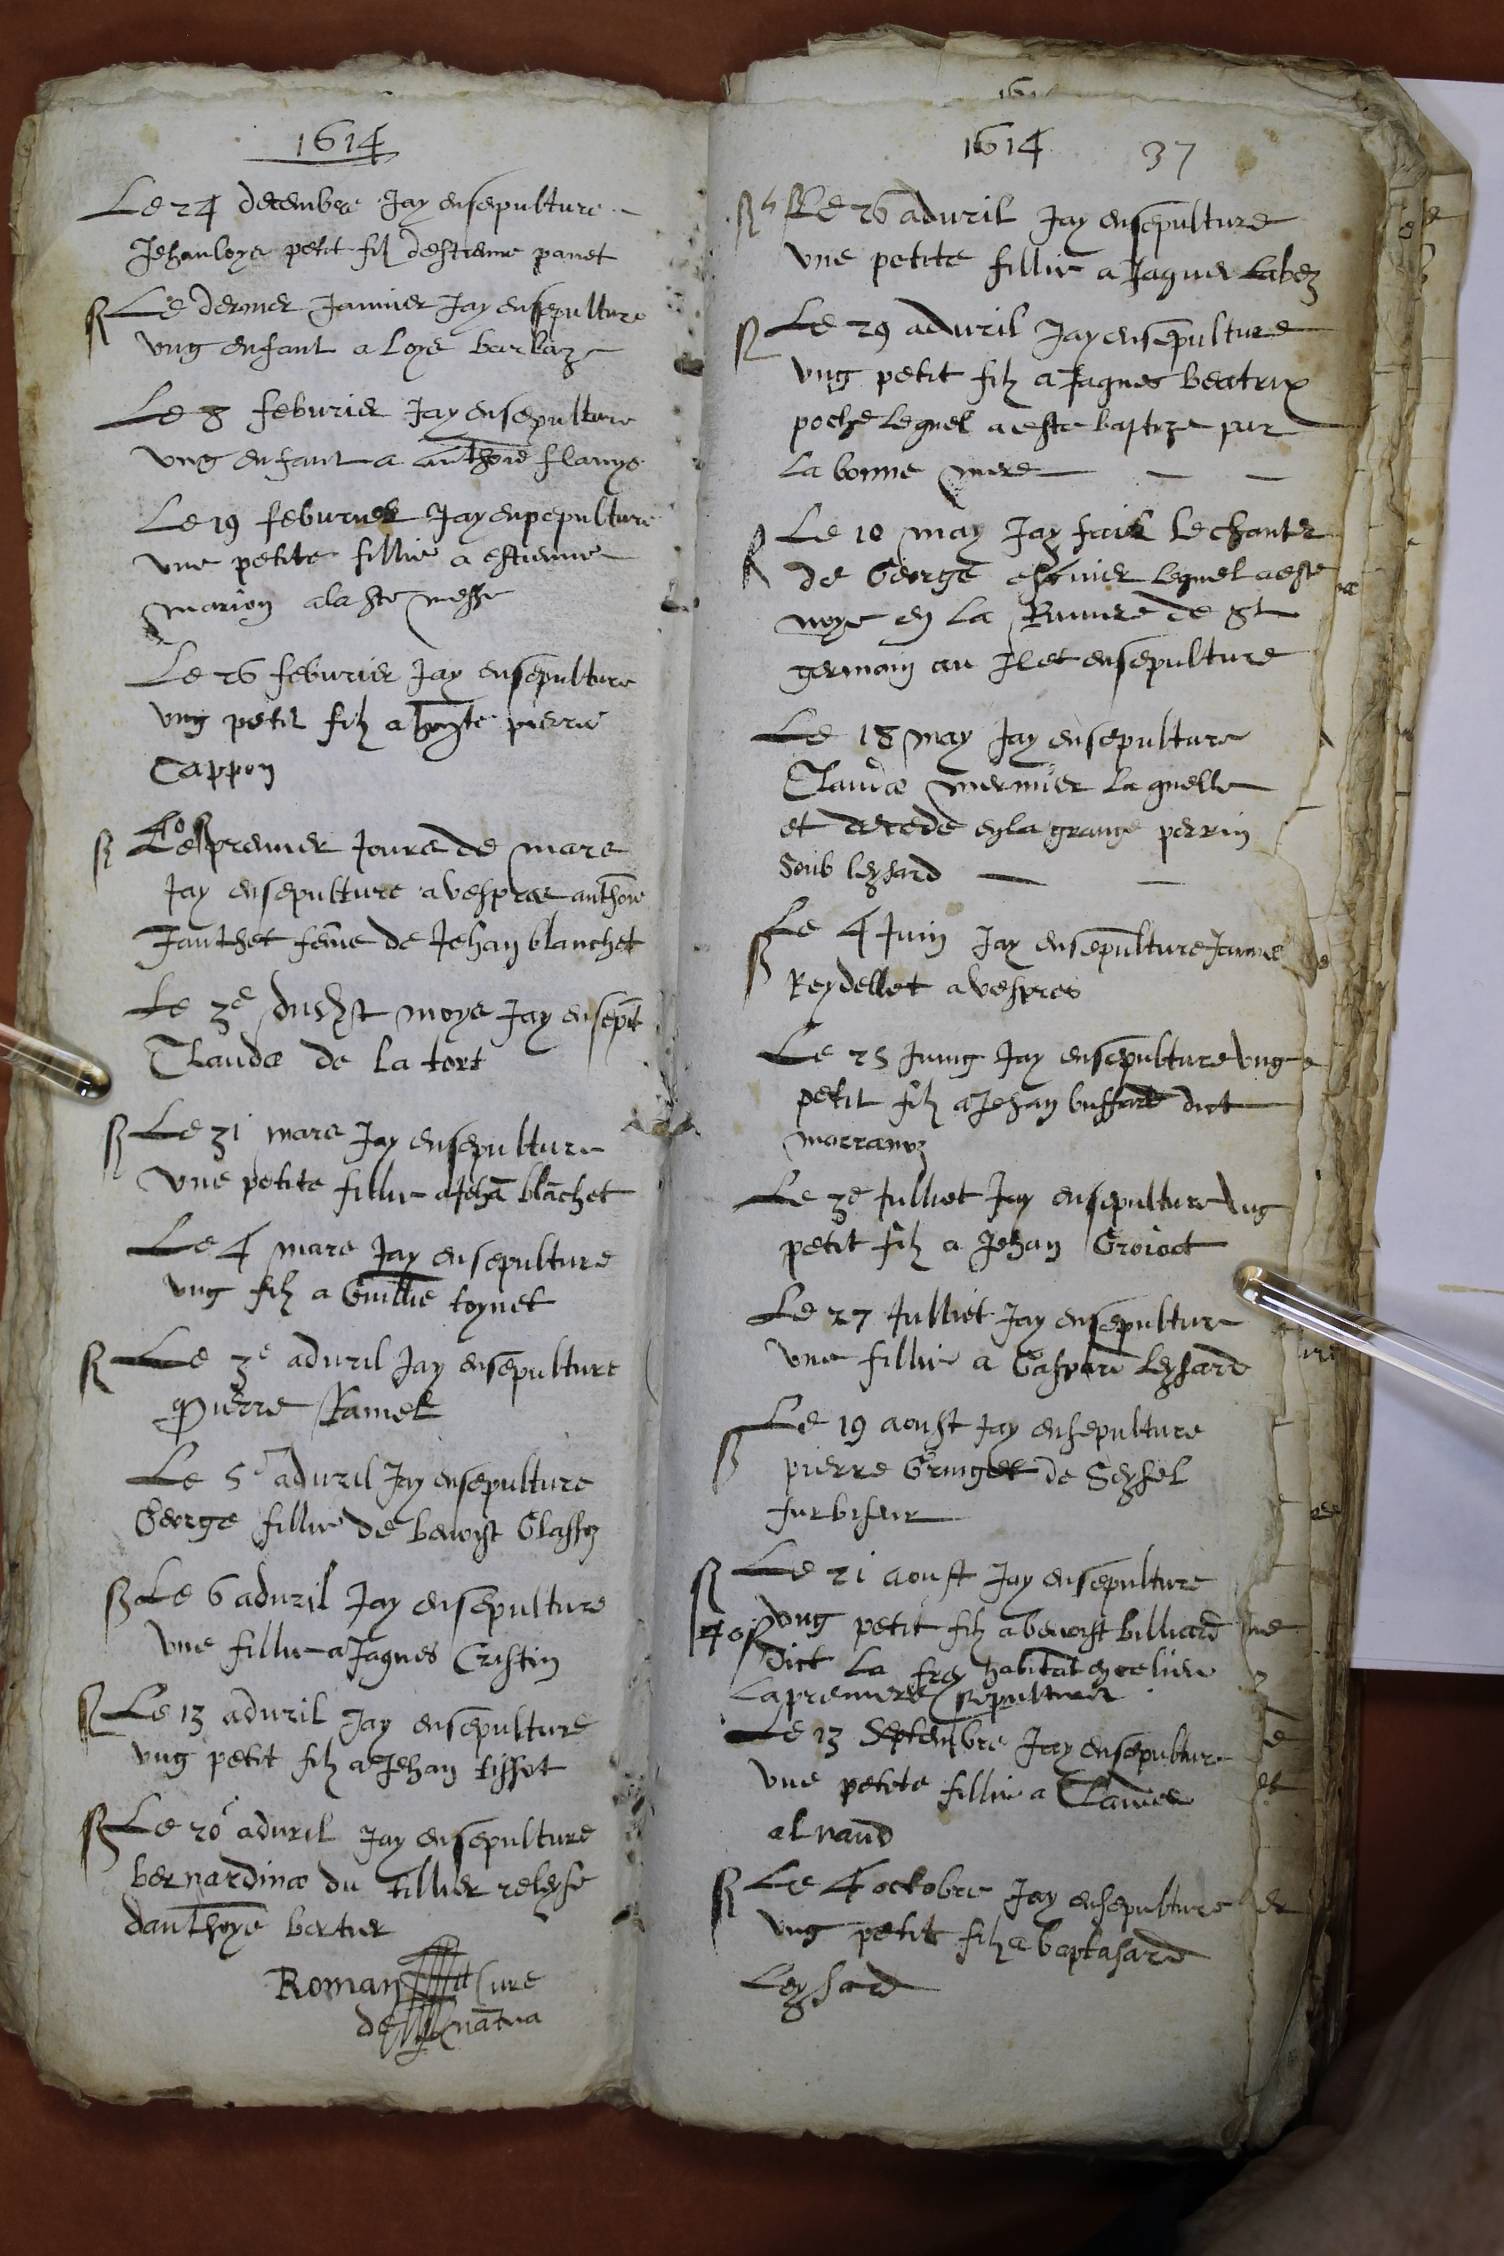 1614
Le 24 decembre Jay ensepulture
Jehan loys petit filz destienne panet
R Le dernier Januier Jay ensepulture
ung enfant a loys barbaz
Le 8 feburier Jay ensepulture
ung enfant a anthoe flamys
Le 19 feburier Jay enpepulture
une petite fillie a estienne
marion a la ste messe
Le 26 feburier Jay ensepulture
ung petit filz a pierre
Cappon
R Le premier Jours de mars
Jay ensepulture a vespres anthoie
Janthet feme de Jehan blanchet
Le 3e dudst moys Jay ensept
Claudae de la tort
R Le 31 mars Jay ensepulture
une petite fillie a Jehā blāchet
Le 4 mars Jay ensepulture
ung filz a Guillie toynet
R Le 3e aduril Jay ensepulture
pierre Ramel
Le 5e aduril Jay ensepulture
George fillie de benoist
R Le 6 aduril Jay ensepulture
une fillie a Jaques Cristin
R Le 13 aduril Jay ensepulture
ung petit filz a Jehan tissot
R Le 20 aduril Jay ensepulture
bernardinae du tillier
danthoyē bertier
Roman Cure
de nātua
1614 37
R Le 26 aduril Jay ensepulture
une petite fillie a Jaques Labez
R Le 29 aduril Jay ensepulture
ung petit filz a Jaques beatrix
poche lequel a este baptize par
la bonne mere
R Le 10 may Jay faict le chanter
de George lequel a este
noye en la Riuiere de St
germain au Jlet ensepulture
Le 18 may Jay ensepulture
Claudae mermier laquelle
et decede en la grange perrin
soub leyssard
R Le 4 Juin Jay ensepulture Janne
Reydellet a vespres
Le 25 Juing Jay ensepulture ung
petit filz a Jehan buffard dict
marranoz
Le 3e Julliet Jay ensepulture ung
petit filz a Jehan Groioct
Le 27 Julliet Jay ensepulture
une fillie a Gaspard leysard
R Le 19 aoust Jay ensepulture
pierre Gringet de Seyssel
furbiseur
R Le 21 aoust Jay ensepulture
ung petit filz a benoist billiard
dict la frey habitāt en ce lieu
la premiere sepulture
Le 13 Septembre Jay ensepulture
une petite fillie a Claudes
alnaud
R Le 4 octobre Jay ensepulture
ung petit filz a baptasard
Leyssard